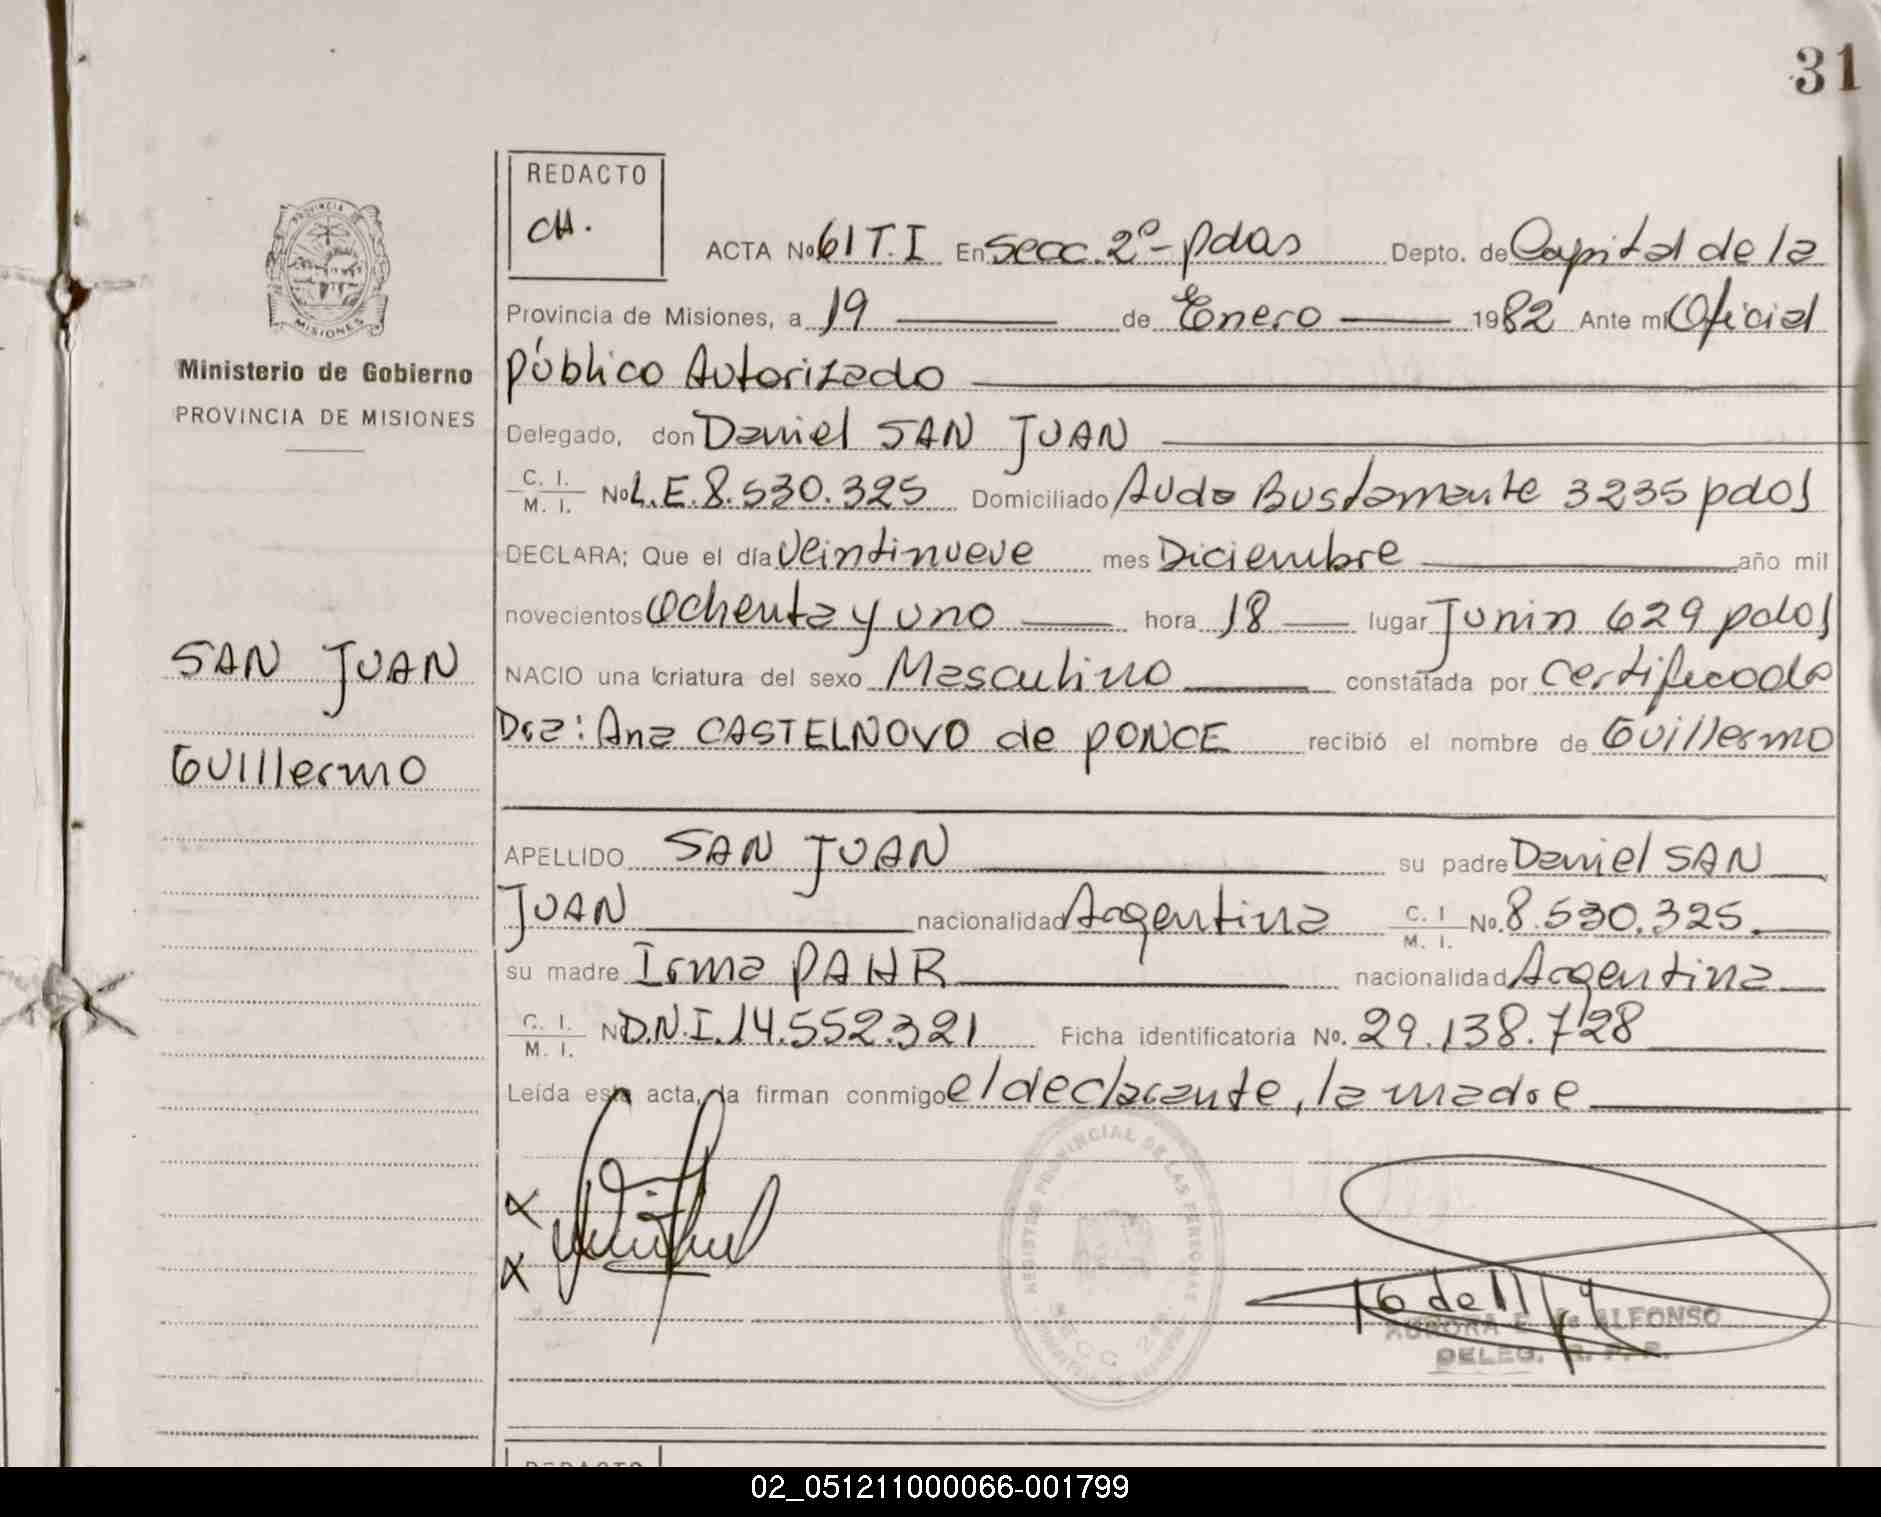 31
REDACTO
CH.
PROVINCIA DE
MISIONES
Ministerio de Gobierno
PROVINCIA DE MISIONES
SAN JUAN
Guillermo
ACTA No 61 T.I En Secc. 2º- pdas Depto. de Capital de la
Provincia de Misiones, a 19 de Enero 1982 Ante mi Oficial
Público Autorizado
Delegado, don Daniel SAN JUAN
C. I. / M. I. No L.E. 8.530.325 Domiciliado Avda Bustamante 3235 pdas
DECLARA; Que el día veintinueve mes Diciembre año mil
novecientos ochenta y uno hora 18 lugar Junin 629 pdas
NACIO una criatura del sexo Masculino constatada por certificado
Dra: Ana CASTELNOVO de PONCE recibió el nombre de Guillermo
APELLIDO SAN JUAN su padre Daniel SAN
JUAN nacionalidad Argentina C. I / M. I. No. 8.530.325.
su madre Irma PAHR nacionalidad Argentina
C. I. / M. I. No D.N.I. 14.552.321 Ficha identificatoria No. 29.138.728
Leída esta acta, la firman conmigo el declarante, la madre
REGISTRO PROVINCIAL DE LAS PERSONAS
SECC 2da.
AURORA E. de ALFONSO
DELEG. R. P. P.
REDACTO
02_051211000066-001799